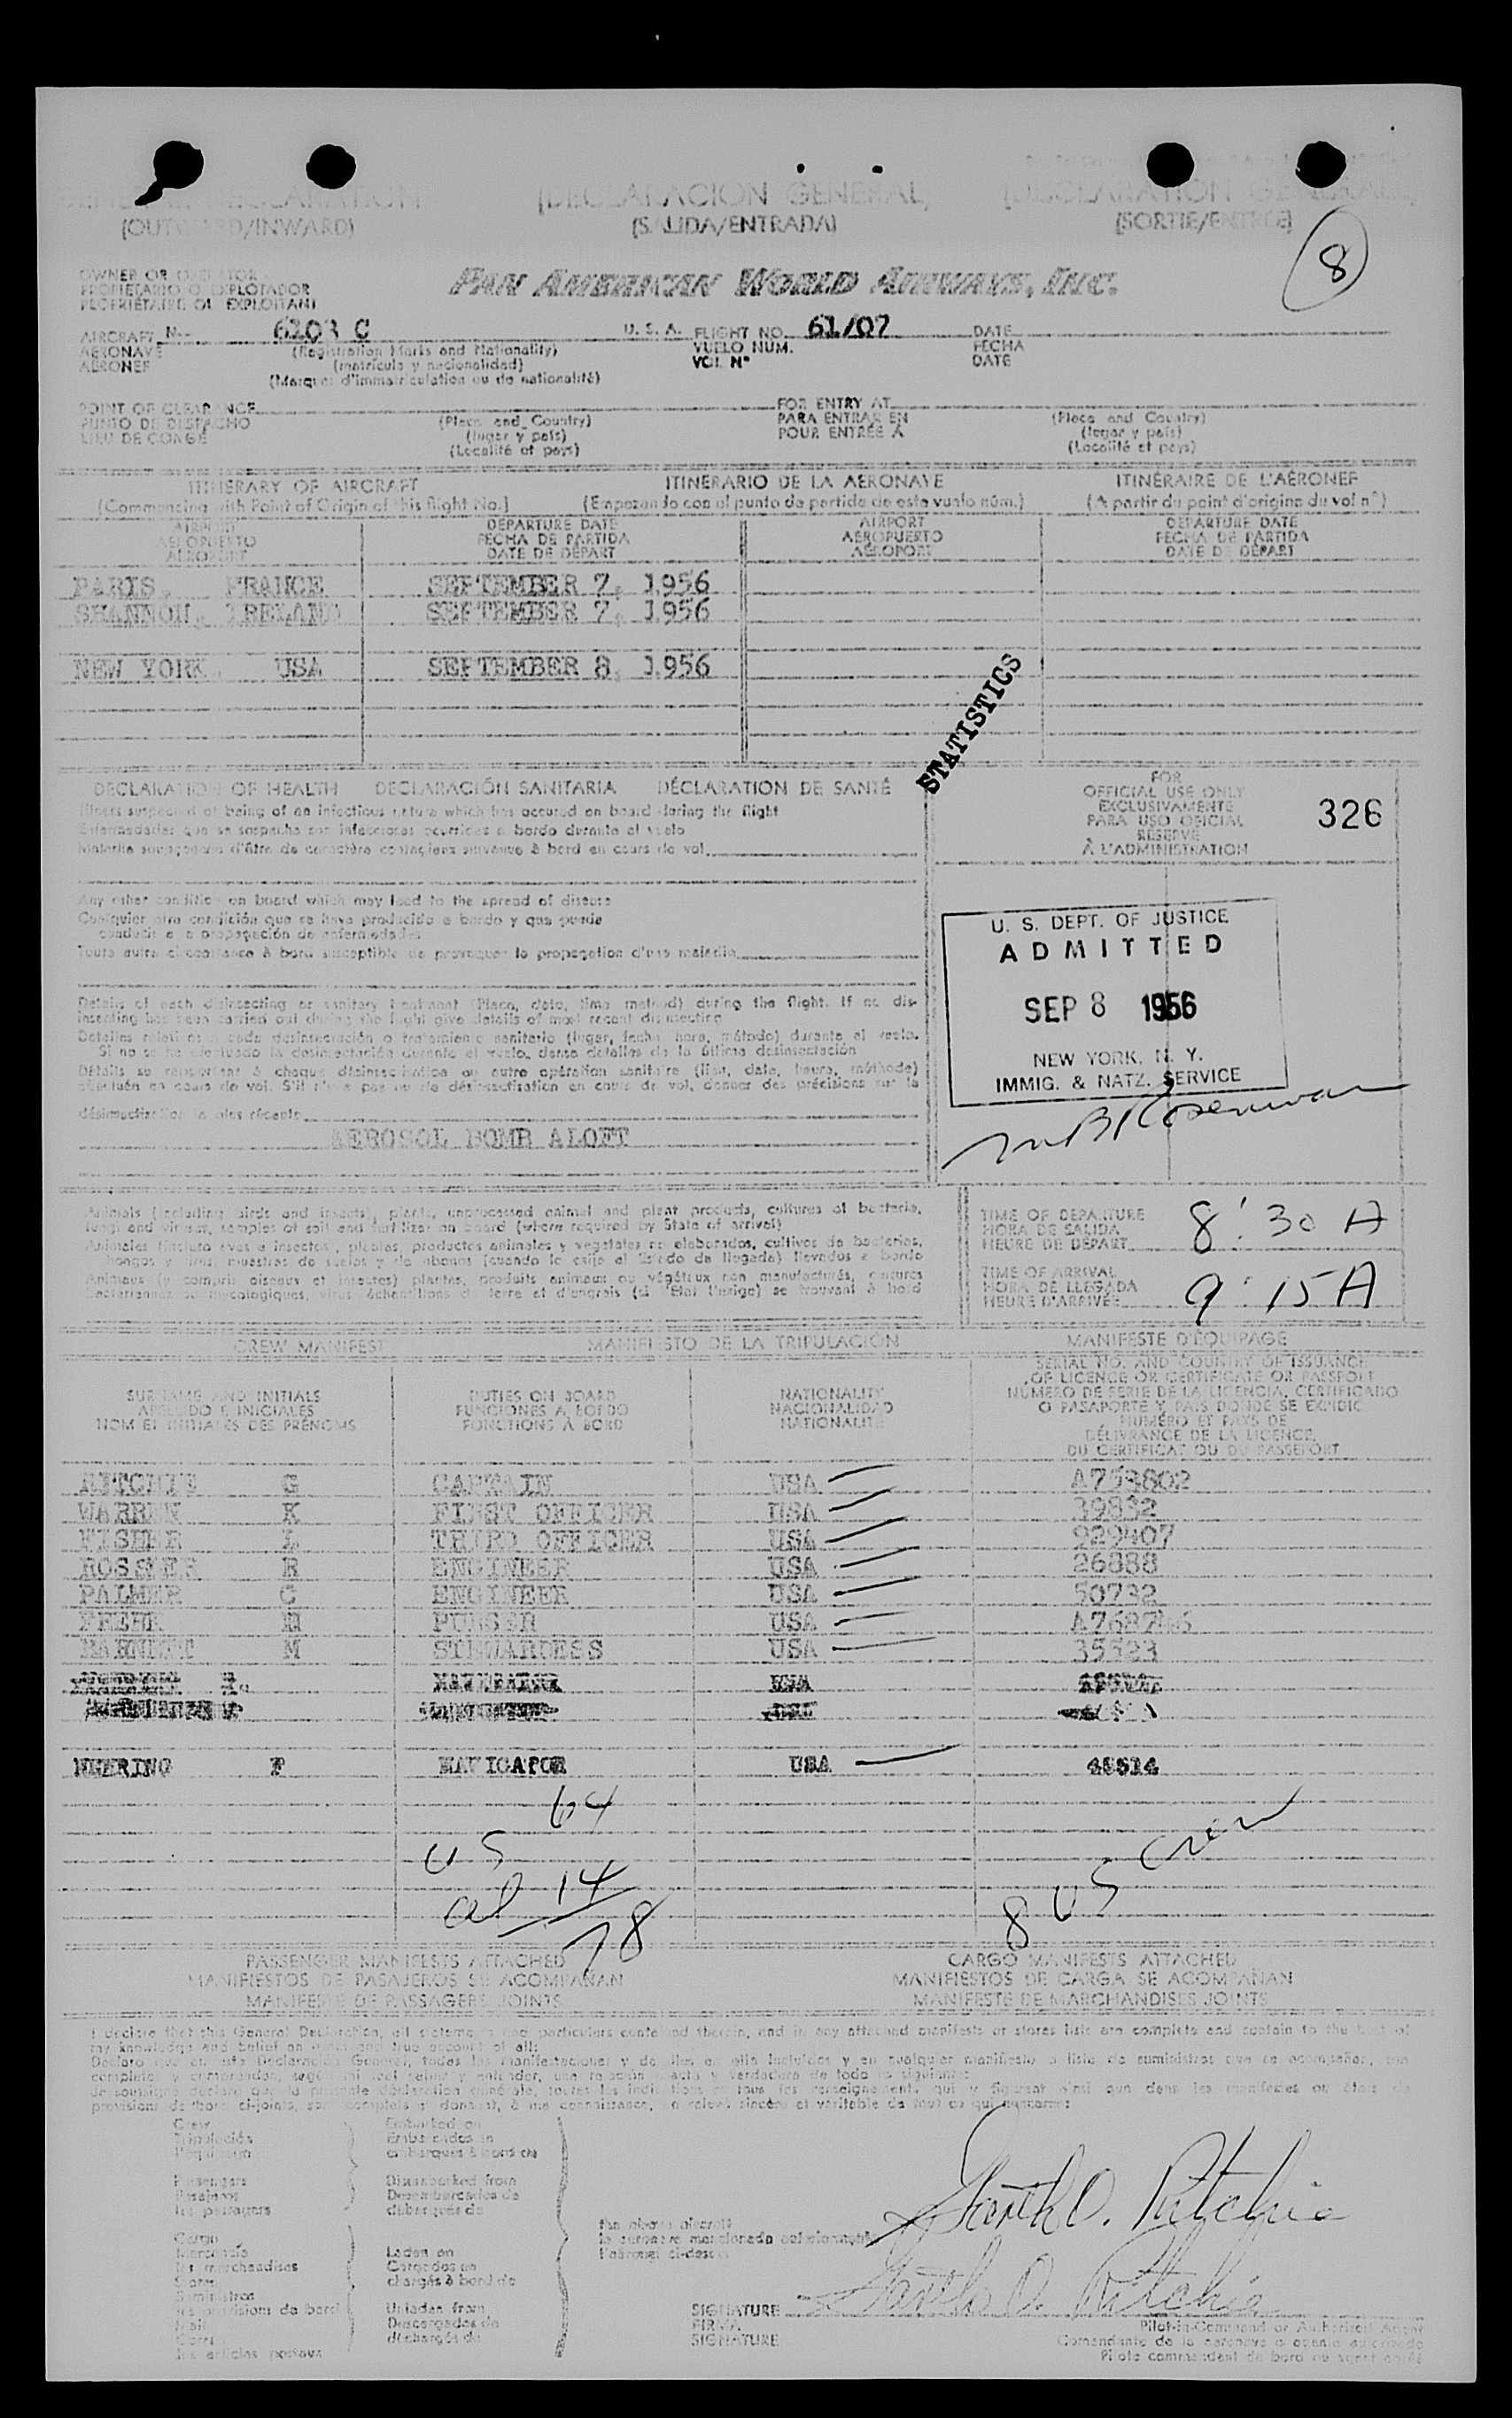 GENERAL DECLARATION (DECLARACION GENERAL) (DECLARATION GENERALE)
(OUTGUARD/INWARD) (SALIDA/ENTRADA) (SORTIE/ENTREE)
8
OWNER OR OPERATOR
PROPIETARIO O EXPLOTADOR
PROPRIÉTAIRE OU EXPLOITANT
PAN AMERICAN WORLD AIRWAYS, INC.
AIRCRAFT N-- C U. S. A. FLIGHT NO. 61/07 DATE
AERONAVE (Registration Marks and Nationality) VUELO NUM. FECHA
AERONEF (matrícula y nacionalidad) VOL N° DATE
(Marques d'immatriculation ou de nationalité)
POINT OF CLEARANCE FOR ENTRY AT
PUNTO DE DESPACHO (Place and Country) PARA ENTRAR EN (Place and Country)
LIEU DE CONGÉ (lugar y país) POUR ENTRÉE A (lugar y país)
(Localité et pays) (Localité et pays)
ITINERARY OF AIRCRAFT ITINERARIO DE LA AERONAVE ITINÉRAIRE DE L'AÉRONEF
(Commencing with Point of Origin of this flight No.) (Empezando con el punto de partida de este vuelo núm.) (A partir du point d'origine du vol n°)
AIRPORT DEPARTURE DATE AIRPORT DEPARTURE DATE
AEROPUERTO FECHA DE PARTIDA AEROPUERTO FECHA DE PARTIDA
AEROPORT DATE DE DÉPART AÉROPORT DATE DE DÉPART
PARIS, FRANCE SEPTEMBER 7, 1956
SHANNON, IRELAND SEPTEMBER 7, 1956
NEW YORK, USA SEPTEMBER 8, 1956
STATISTICS
DECLARATION OF HEALTH DECLARACIÓN SANITARIA DÉCLARATION DE SANTÉ
Illness suspected of being of an infectious nature which has occured on board during the flight
Enfermedades que se sospecha son infecciosas ocurridas a bordo durante el vuelo
Maladie soupçonnée d'être de caractère contagieux survenue à bord en cours de vol
Any other condition on board which may lead to the spread of disease
Cualquier otra condición que se haya producido a bordo y que pueda
conducir a la propagación de enfermedades
Toute autre circonstance à bord susceptible de provoquer la propagation d'une maladie
Details of each disinsecting or sanitary treatment (Place, date, time method) during the flight. If no dis-
insecting has been carried out during the flight give details of most recent disinsecting
Detalles relativos a cada desinsectación o tratamiento sanitario (lugar, fecha, hora, método) durante el vuelo.
Si no se ha efectuado la desinsectación durante el vuelo, dense detalles de la última desinsectación
Détails se rapportant à chaque désinsectisation ou autre opération sanitaire (lieu, date, heure, méthode)
effectuée en cours de vol. S'il n'y a pas eu de désinsectisation en cours de vol, donner des précisions sur la
désinsectisation la plus récente
AEROSOL BOMB ALOFT
FOR
OFFICIAL USE ONLY
EXCLUSIVAMENTE
PARA USO OFICIAL
RÉSERVÉ
À L'ADMINISTRATION
326
U. S. DEPT. OF JUSTICE
ADMITTED
SEP 8 1956
NEW YORK, N. Y.
IMMIG. & NATZ. SERVICE
Animals (including birds and insects), plants, unprocessed animal and plant products, cultures of bacteria,
fungi and viruses, samples of soil and fertilizer on board (where required by State of arrival)
Animales (incluso aves e insectos), plantas, productos animales y vegetales no elaborados, cultivos de bacterias,
hongos y virus, muestras de suelos y de abonos (cuando lo exija el Estado de llegada) llevados a bordo
Animaux (y compris oiseaux et insectes) plantes, produits animaux ou végétaux non manufacturés, cultures
bactériennes ou mycologiques, virus, échantillons de terre et d'engrais (si l'Etat l'exige) se trouvant à bord
TIME OF DEPARTURE
HORA DE SALIDA
HEURE DE DÉPART
8:30 A
TIME OF ARRIVAL
HORA DE LLEGADA
HEURE D'ARRIVÉE
9:15 A
CREW MANIFEST MANIFIESTO DE LA TRIPULACIÓN MANIFESTE D'ÉQUIPAGE
SURNAME AND INITIALS DUTIES ON BOARD NATIONALITY SERIAL NO. AND COUNTRY OF ISSUANCE
APELLIDO E INICIALES FUNCIONES A BORDO NACIONALIDAD OF LICENCE OR CERTIFICATE OR PASSPORT
NOM ET INITIALES DES PRÉNOMS FONCTIONS À BORD NATIONALITÉ NÚMERO DE SERIE DE LA LICENCIA, CERTIFICADO
O PASAPORTE Y PAÍS DONDE SE EXPIDIÓ
NUMÉRO ET PAYS DE
DÉLIVRANCE DE LA LICENCE,
DU CERTIFICAT OU DU PASSEPORT
RITCHIE G CAPTAIN USA A753802
WARREN K FIRST OFFICER USA 39832
FISHER L THIRD OFFICER USA 929407
R ENGINEER USA 26888
PALMER C ENGINEER USA 50732
PURSER USA
M STEWARDESS USA 35523
F NAVIGATOR USA 45514
64
US
al 14
78
8 US Crew
PASSENGER MANIFESTS ATTACHED CARGO MANIFESTS ATTACHED
MANIFIESTOS DE PASAJEROS SE ACOMPAÑAN MANIFIESTOS DE CARGA SE ACOMPAÑAN
MANIFESTE DE PASSAGERS JOINTS MANIFESTE DE MARCHANDISES JOINTS
I declare that this General Declaration, all statements and particulars contained therein, and in any attached manifests or stores lists are complete and contain to the best of
my knowledge and belief an exact and true account of all:
Crew Embarked on
Tripulación Embarcados en
l'équipage embarqués à bord de
Passengers Disembarked from
Pasajeros Desembarcados de
les passagers débarqués de
Cargo
Mercancía Laden on
les marchandises Cargados en
Stores chargés à bord de
Suministros
les provisions de bord Unladen from
Mail Descargados de
Correo déchargés de
les articles postaux
the above aircraft
la aeronave mencionada
l'aéronef ci-dessus
Garth O. Ritchie
Garth O. Ritchie
SIGNATURE
FIRMA
SIGNATURE
Pilot-in-Command or Authorized Agent
Comandante de la aeronave o agente autorizado
Pilote commandant de bord ou agent agréé